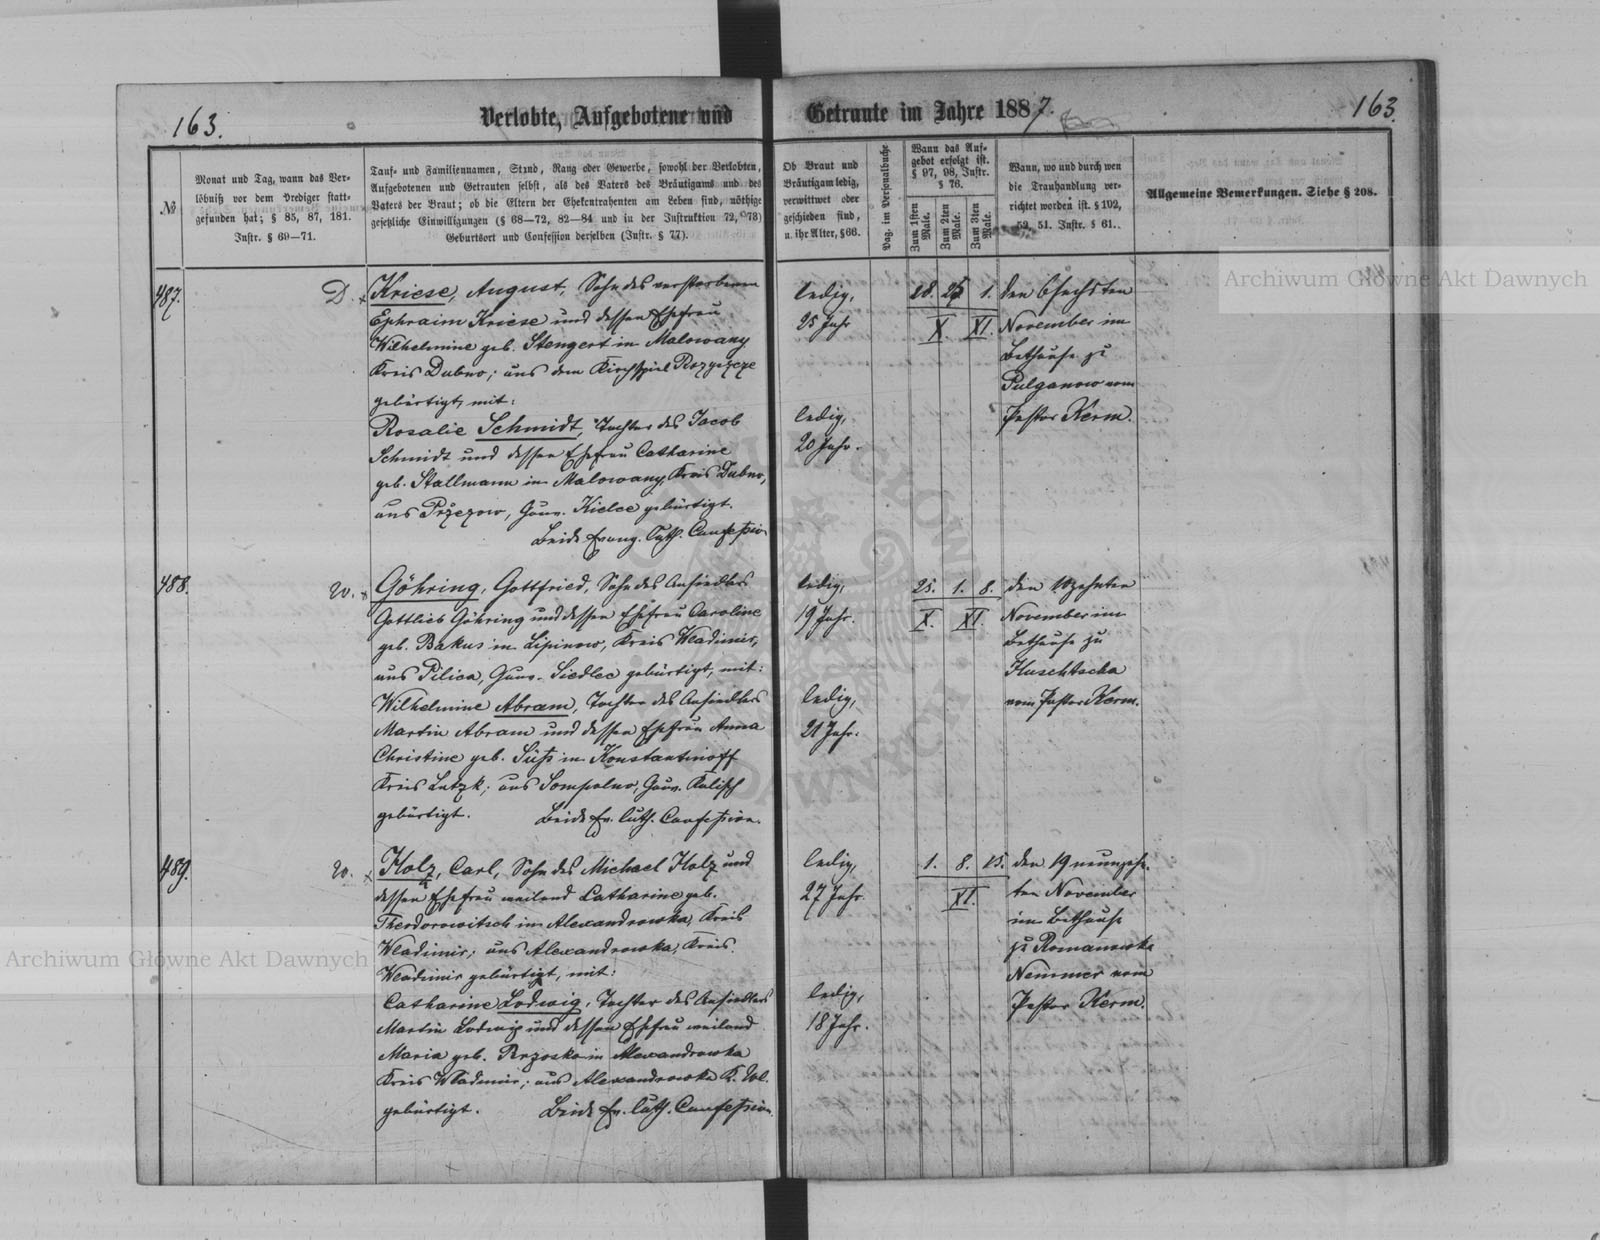 163.
Verlobte, Aufgebotene und
Getraute im Jahre 1887.
163
№
Monat und Tag, wann das Ver-
löbniß vor dem Prediger statt-
gefunden hat; § 85, 87, 181.
Instr. § 69—71.
Tauf- und Familiennamen, Stand, Rang oder Gewerbe, sowohl der Verlobten,
Aufgebotenen und Getrauten selbst, als des Vaters des Bräutigams und des
Vaters der Braut; ob die Eltern der Ehekontrahenten am Leben sind, nöthige
gesetzliche Einwilligungen (§ 68—72, 82—84 und in der Instruktion 72, 73)
Geburtsort und Confession derselben (Instr. § 77).
Ob Braut und
Bräutigam ledig,
verwittwet oder
geschieden sind,
u. ihr Alter, §66.
Pag. im Personalbuche
Wann das Auf-
gebot erfolgt ist.
§ 97, 98, Instr.
§ 76.
Zum 1sten Male.
Zum 2ten Male.
Zum 3ten Male.
Wann, wo und durch wen
die Trauhandlung ver-
richtet worden ist. § 102,
51. Instr. § 61.
Allgemeine Bemerkungen. Siehe § 208.
487.
D.
Kriese, August, Sohn des verstorbenen
Ephraim Kriese und dessen Ehefrau
Wilhelmine geb. Stengert in Malowany
Kreis Dubno; aus dem Kirchspiel Rozyszcze
gebürtigt, mit:
Rosalie Schmidt, Tochter des Jacob
Schmidt und dessen Ehefrau Catharine
geb. Stallmann in Malowany, Kreis Dubno,
aus Gouv. Kielce gebürtigt.
Beide Evang. Luth. Confession
ledig,
25 Jahr
ledig,
20 Jahr.
18. 25 1.
X. XI.
den 6 sechsten
November im
Bethause zu
Pulganow vom
Pastor Kerm.
488.
W.
Göhring, Gottfried, Sohn des Ansiedlers
Gottlieb Göhring und dessen Ehefrau Caroline
geb. Bakus in Lipinow, Kreis Wladimir,
aus Pilica, Gouv. Siedlec gebürtigt, mit:
Wilhelmine Abram, Tochter des Ansiedlers
Martin Abram und dessen Ehefrau Anna
Christine geb. Süß in Konstantinoff
Kreis Lutzk; aus Sompolno, Gouv. Kalisch
gebürtigt. Beide Ev. Luth. Confession.
ledig,
19 Jahr.
ledig,
21 Jahr.
25. 1. 8.
X. XI.
den 10 zehnten
November im
Bethause zu
Huschtscha
vom Pastor Kerm.
489.
W.
Holz, Carl, Sohn des Michael Holz und
dessen Ehefrau weiland Catharine geb.
Theodorowitsch in Alexandrowka, Kreis
Wladimir; aus Alexandrowka, Kreis
Wladimir gebürtigt, mit:
Catharine Lodwig, Tochter des Ansiedlers
Martin Lodwig und dessen Ehefrau weiland
Maria geb. Brzoska in Alexandrowka
Kreis Wladimir; aus Alexandrowka K. Wl.
gebürtigt. Beide Ev. Luth. Confession.
ledig,
27 Jahr
ledig,
18 Jahr.
1. 8. 15.
XI.
den 19 neunzehn-
ten November
im Bethause
zu Romanowka
Nemmer vom
Pastor Kerm.
Archiwum Główne Akt Dawnych
Archiwum Główne Akt Dawnych